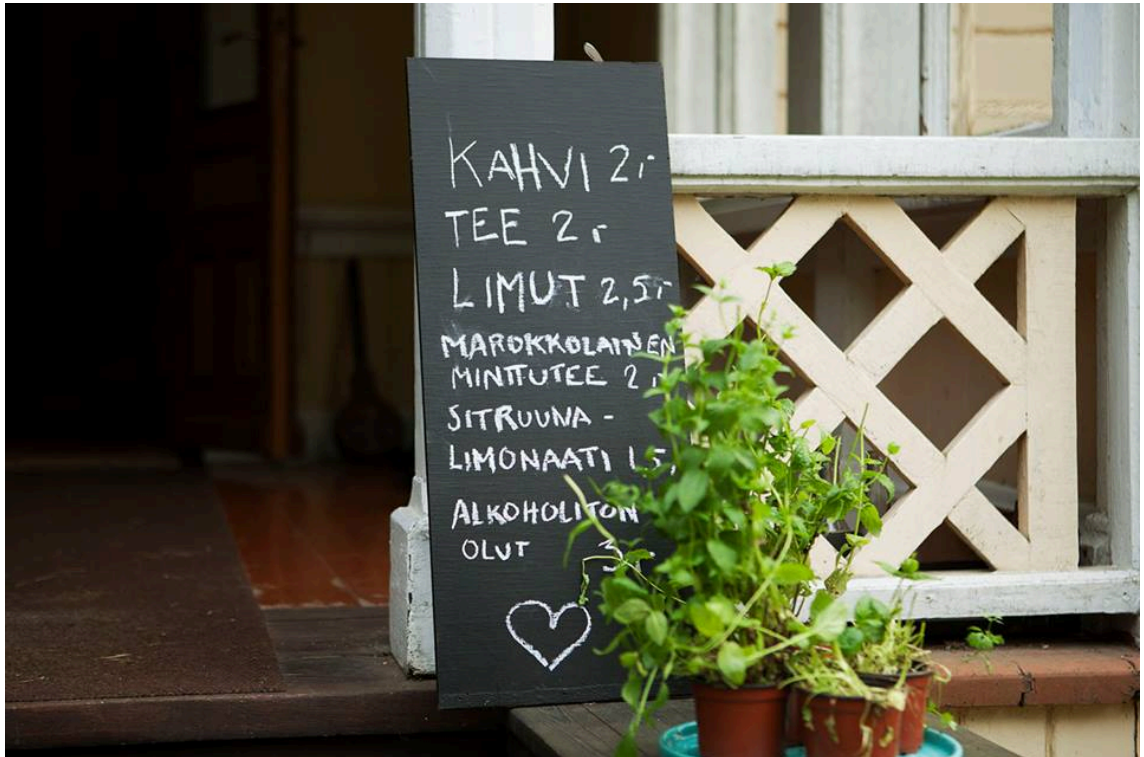 KAHVI 2,-
TEE 2,-
LIMUT 2,5,-
MAROKKOLAINEN
MINTTUTEE 2,-
SITRUUNA-
LIMONAATI 1,5,
ALKOHOLITON
OLUT 3